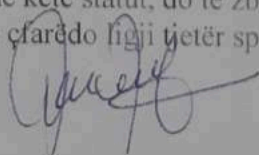 në këtë statut, do të zb
çfarëdo ligji tjetër sp